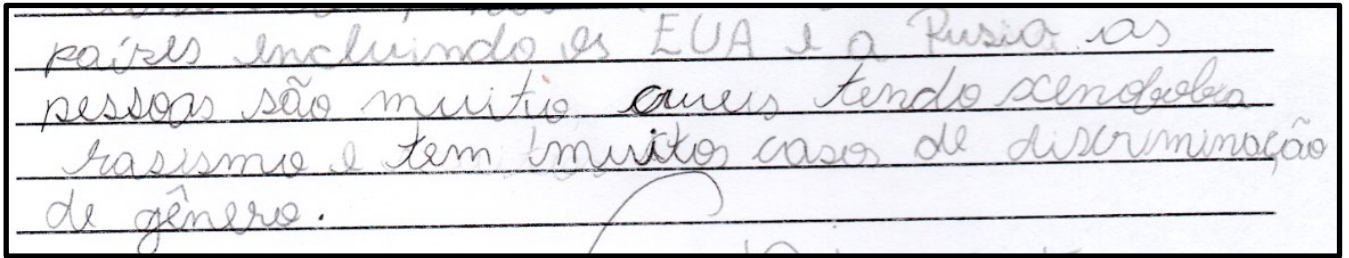 países encluindo os EUA e a Rusia as
pessoas são muitio crueis tendo xenofobia
rasismo e tem muitos casos de discriminação
de gênero.